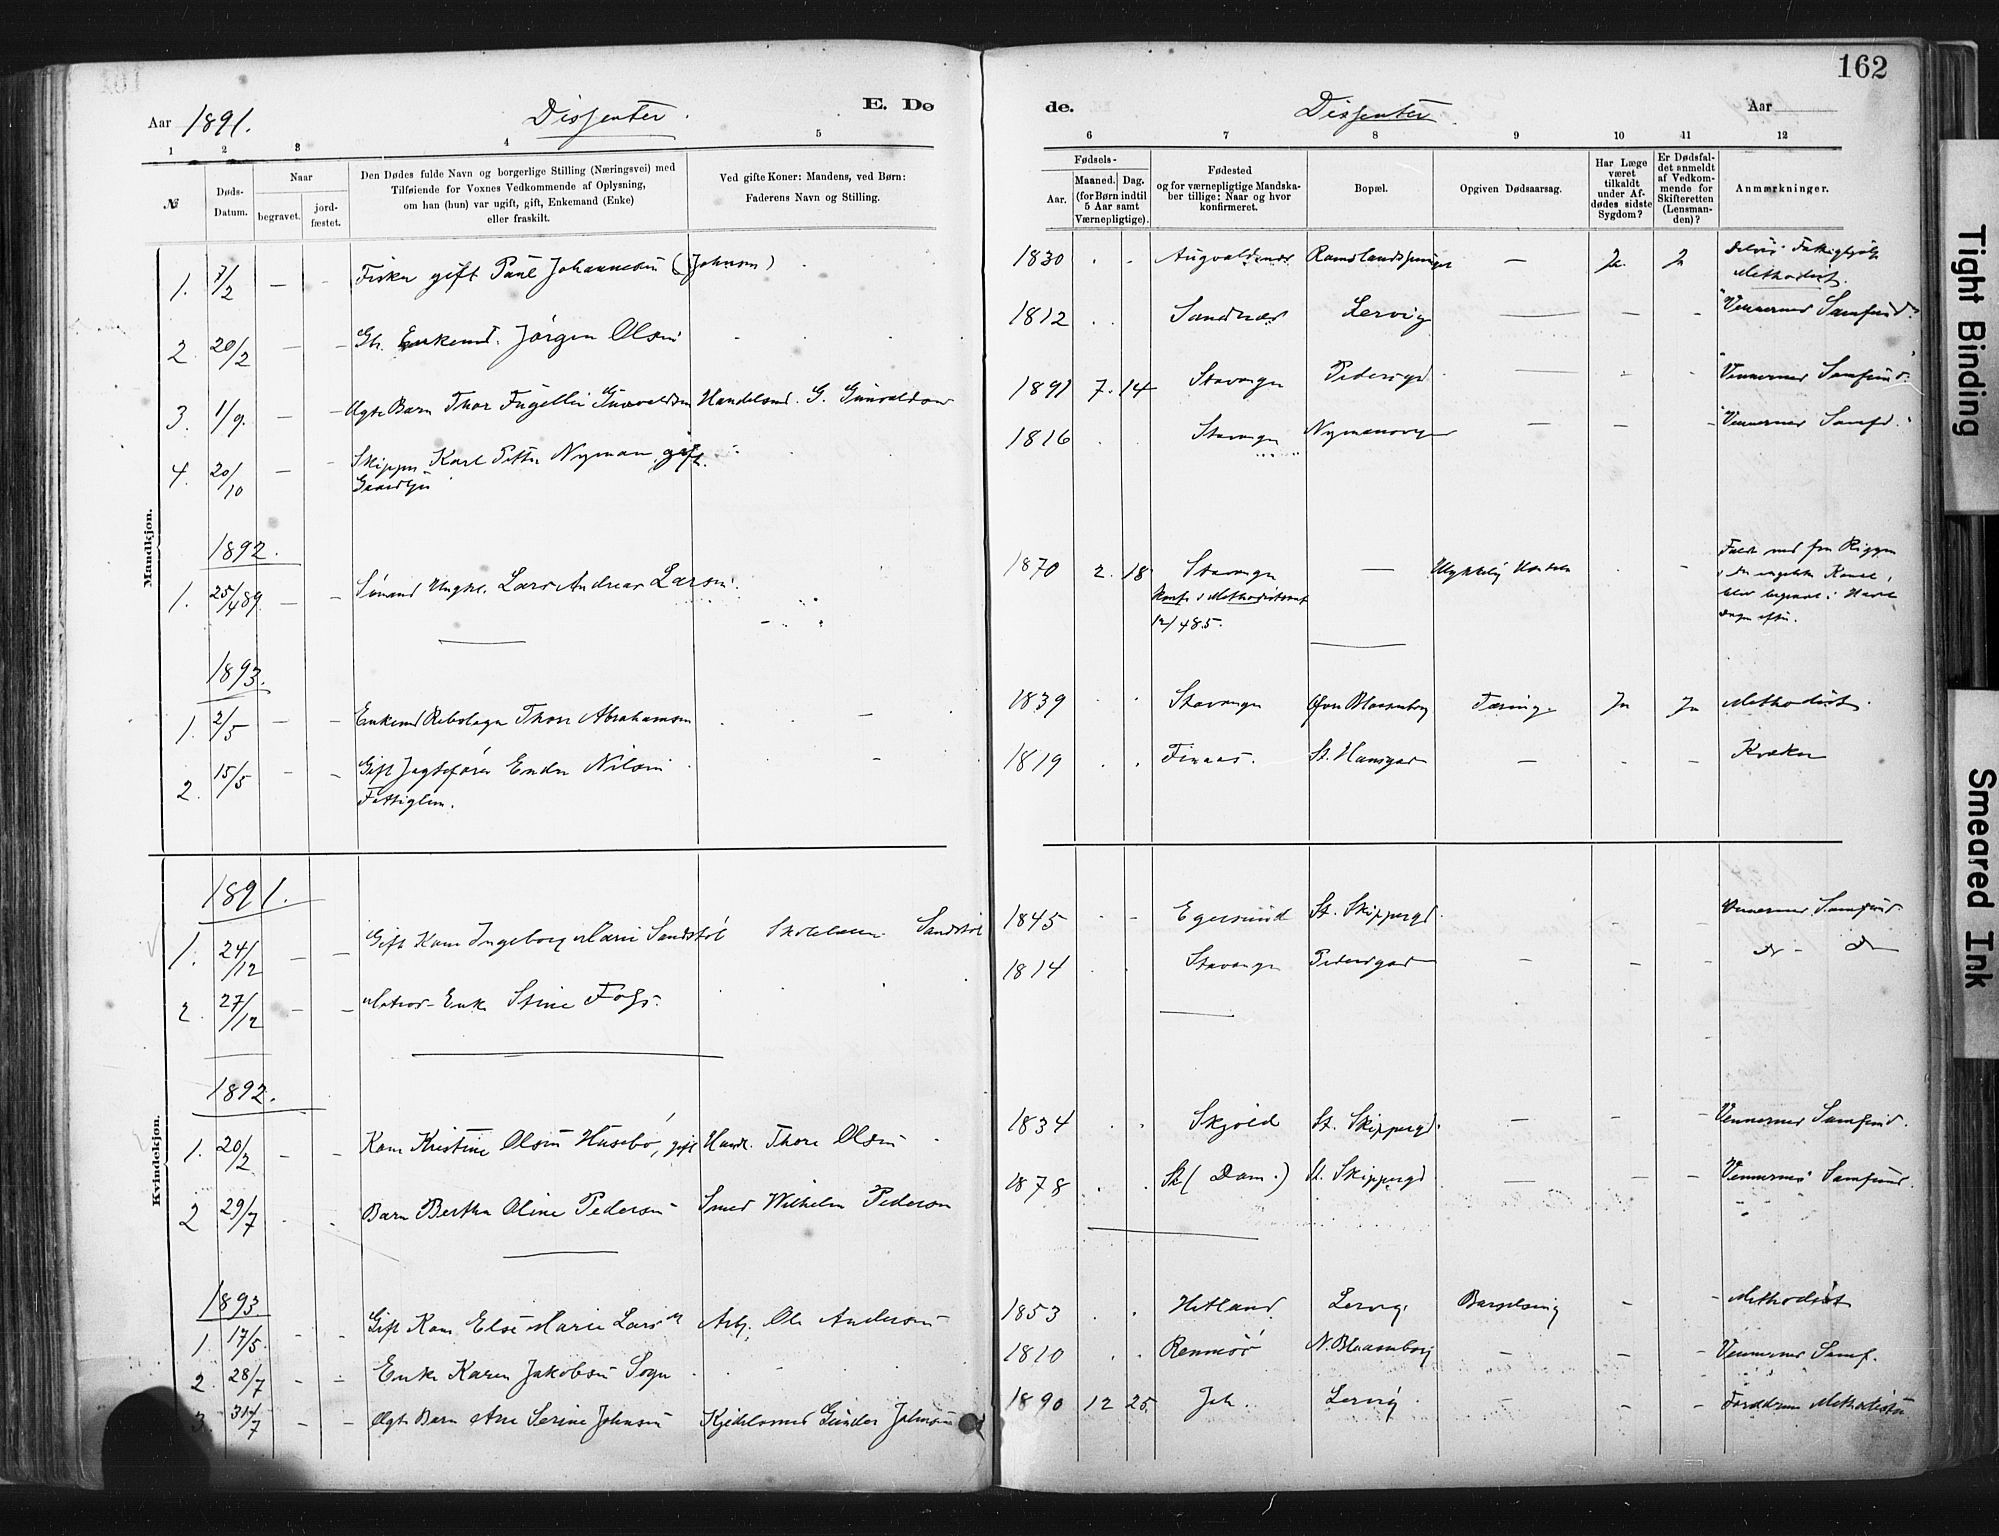 162
Aar 1891.
Dissenter.
E. Dø
de.
Dissenter.
Aar
1 2 3 4 5
6 7 8 9 10 11 12
№
Døds-
Datum.
Naar
begravet.
jord-
fæstet.
Den Dødes fulde Navn og borgerlige Stilling (Næringsvei) med
Tilføiende for Voxnes Vedkommende af Oplysning,
om han (hun) var ugift, gift, Enkemand (Enke)
eller fraskilt.
Ved gifte Koner: Mandens, ved Børn:
Faderens Navn og Stilling.
Fødsels-
Aar.
Maaned. Dag.
(for Børn indtil
5 Aar samt
Værnepligtige).
Fødested
og for værnepligtige Mandska-
ber tillige: Naar og hvor
konfirmeret.
Bopæl.
Opgiven Dødsaarsag.
Har Læge
været
tilkaldt
under Af-
dødes sidste
Sygdom?
Er Dødsfal-
det anmeldt
af Vedkom-
mende for
Skifteretten
(Lensman-
den)?
Anmærkninger.
Mandkjøn.
1. 7/2 — — Fisker gift Paul Johannesen (Johnsen) 1830 Augvaldsnes — Ja. Ja
Methodist.
2. 20/2 — — Enkemd. Jörgen Olsen 1812 Sandnæs Lervig — - - "Vennernes Samfund"
3. 1/9. — — Ægte Barn Thor Fugellie Gunvaldsen Handelsmd. G. Gunvaldsen 1891 7. 14 Stavanger Pedersgd. — "Vennernes Samfund"
4. 20/10 — — Skipper Karl Petter Nyman, gift. 1816 Stavanger — - - "Vennernes Samfd."
1892.
1. 25/4 89. — — Sömand Ungk. Lars Andreas Larsen. 1870 2. 18 Stavanger — Ulykkelig Hændelse
Faldt ned fra Riggen
Konf. i Methodistsamf
i den engelske Kanal,
12/4 85.
blev begravet i Havet
efter.
1893.
1. 2/5 — — Enkemd Rebslager Thore Abrahamsen — 1839 Stavanger Øvre Blaasenborg Tæring. Ja Ja Methodist.
2. 15/5 — — Gift Jagtefører Endre Nilsen — 1819 Finaas. St. Hansgad — - - Kvæker
Fattiglem.
Kvindekjøn.
1891.
1. 24/12 — — Gift Kone Ingeborg Marie Sandstöl Sandstöl 1845 Egersund St. Skippergd. Vennernes Samfund
2. 27/12 — — Enke Stine Foss. 1814 Stavanger Pedersgad — — - do - do
1892.
1. 20/2 — — Kone Kristine Olsen Husebö, gift Handl. Thore Olsen 1834 Skjold St. Skippergd. — - Vennernes Samfund.
2 29/7 Barn Bertha Oline Pedersen Smed Wilhelm Pedersen 1878 Sk (Dom.) St. Skippergd — — - Vennernes Samfund.
1893
1. 17/5. - - Gift Kone Else Marie Lars Arb. Ole Andersen 1853 Hetland Lervig Barselseng - - Methodist
2. 28/7 - - Enke Karen Jakobsen Sogn 1810 Rennesö N. Blaasenborg — - - Vennernes Samf.
3. 31/7 Ægte Barn Ane Serine Johnsen Kjedelsmed Gunder Johnsen 1890 12 25. Joh. Lervig. Forældrene Methodister
Tight Binding
Smeared Ink